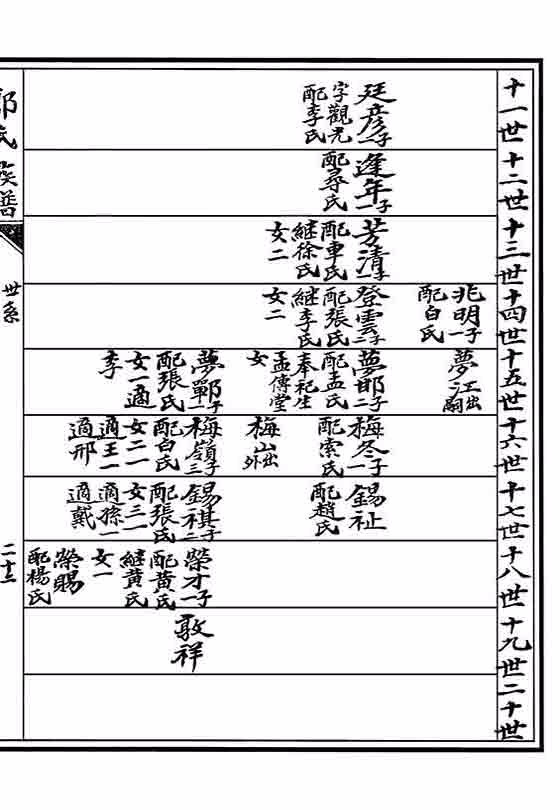 十一世
廷彦
一子
字觀光
配李氏
十二世
逢年
一子
配尋氏
十三世
芳清
一子
配車氏
繼徐氏
女二
十四世
兆明
一子
配白氏
登雲
二子
配張氏
繼李氏
女二
十五世
夢江
出嗣
夢邯
二子
配孟氏
奉祀生
孟傳堂
女
夢鄲
一子
配張氏
女一適
李
十六世
梅冬
一子
配索氏
梅山
出外
梅嶺
三子
配白氏
女二一
適王一
適邢
十七世
錫祉
配趙氏
錫祺
二子
配張氏
女三一
適孫一
適戴
十八世
榮才
一子
配黄氏
繼黄氏
女一
榮賜
配楊氏
十九世
敬祥
二十世
氏族譜
世系
二十三